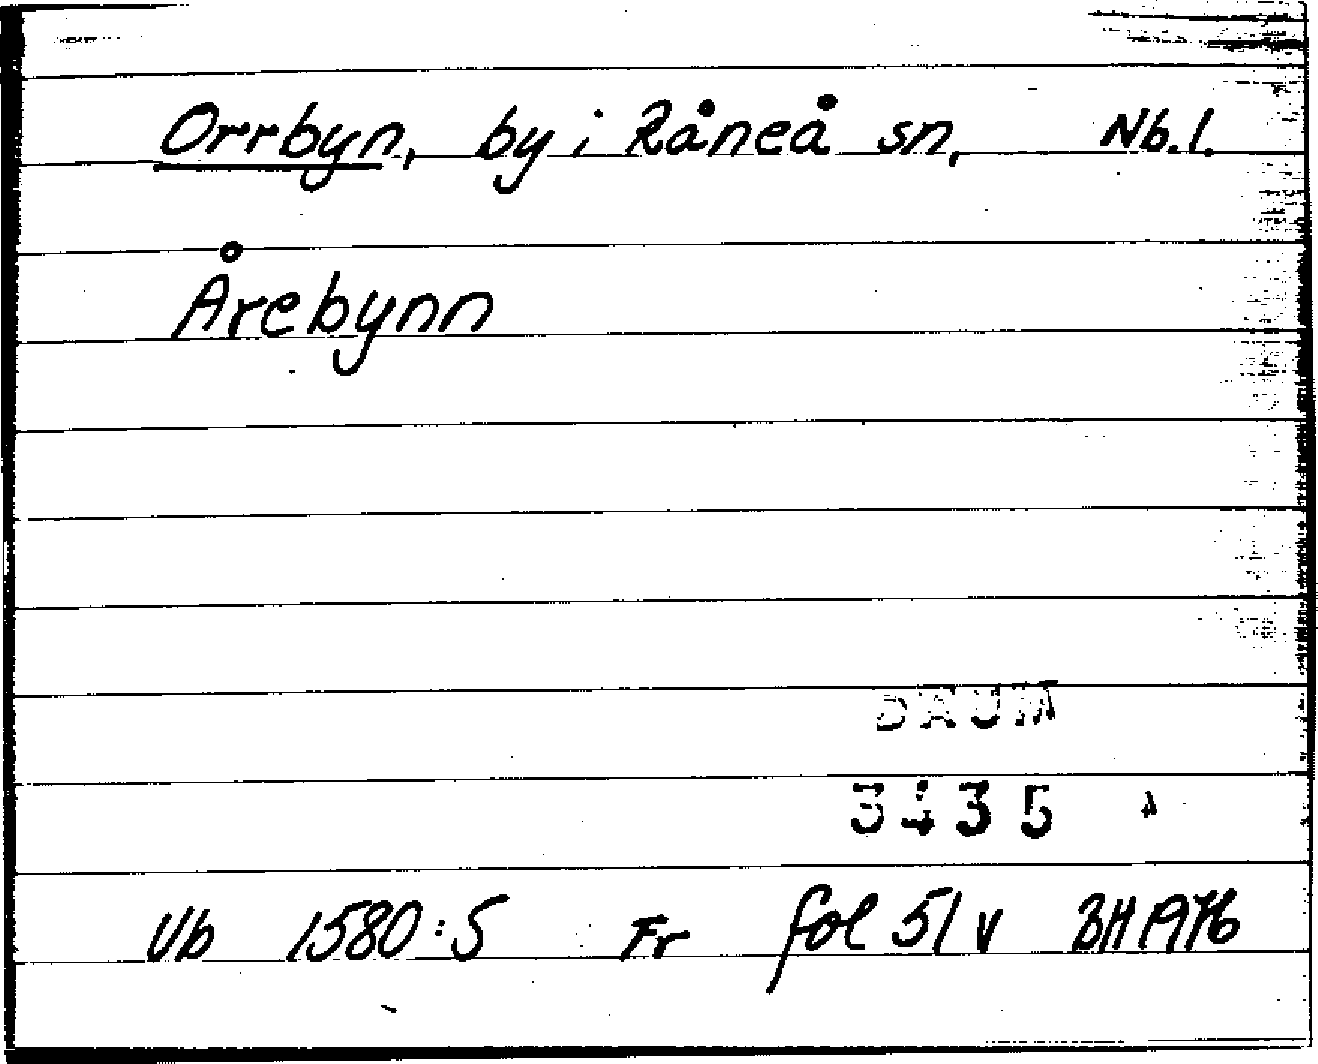 Orrbyn, by i Råneå sn, Nb.l.
Årebynn
DAUM
3435
Vb 1580:5 Fr fol 51 v BH 1976